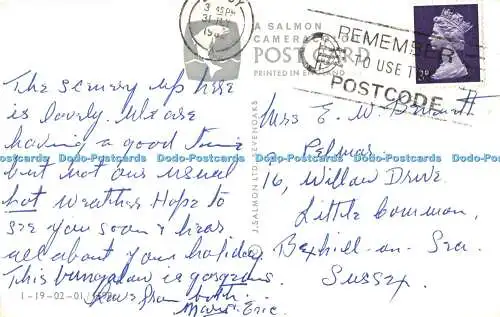 3 45 PM
31
A SALMON
CAMERACOLOUR
POSTCARD
PRINTED IN ENGLAND
REMEMBER
TO USE THE
POSTCODE
The scenery up here
is lovely. We are
having a good time
but not our usual
hot weather Hope to
see you soon & hear
all about your holiday.
This bungalow is gorgeous.
Love from both.
Eric.
1-19-02-01/
J. SALMON LTD. SEVENOAKS
Mrs E. W.
16, Willow Drive
Little Common,
Bexhill-on-Sea.
Sussex.
Dodo-Postcards Dodo-Postcards Dodo-Postcards Dodo-Postcards Dodo-Postcards Dodo-Postcards